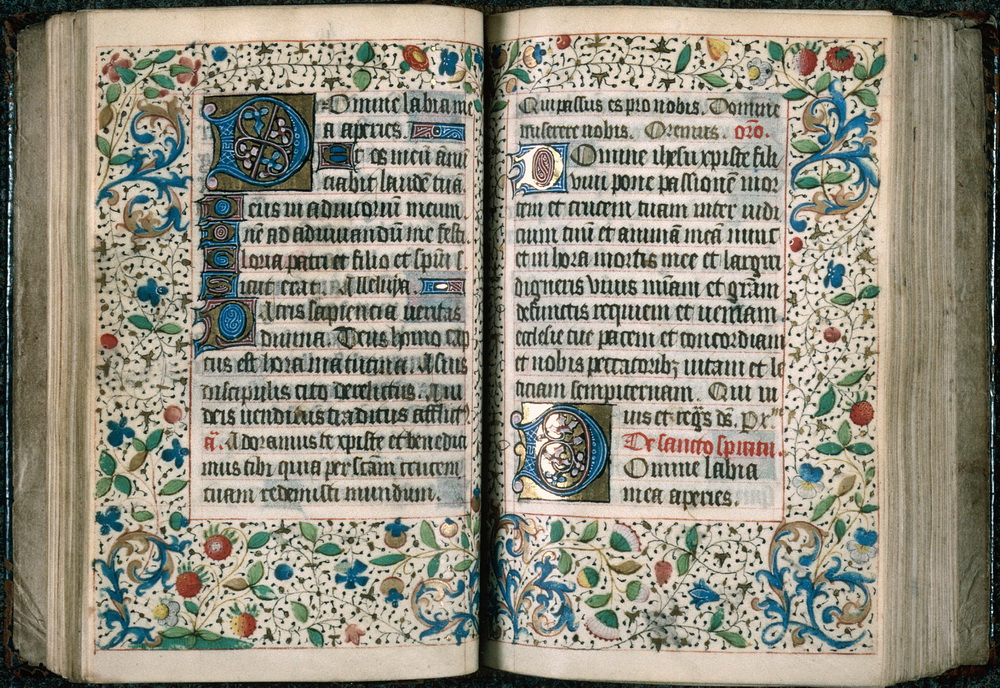 Domine labia me
a aperies.
Et os meū ānū
ciabit laudē tuā.
Deus in adiutoriū meum
Dn̄e ad adiuuandū me festi.
Gloria patri et filio et spūi s
Sicut erat. Alleluya.
Patris sapiencia ueritas
diuina. Deus homo cap
tus est hora matutina. A suis
discipulis cito derelictus. A iu
deis uenditus traditus afflict9
a. Adoramus te xpiste et benedici
mus tibi quia per scām crucem
tuam redemisti mundum.
Qui passus es pro nobis. Domine
miserere nobis. Oremus. orō.
Domine ihesu xpiste fili
dei uiui pone passionē mor
tem et crucem tuam inter iudi
cium tuū et animā meā nunc
et in hora mortis mee et largiri
digneris viuis mīam et grām
defunctis requiem et ueniam
ecclesie tue pacem et concordiam
et nobis peccatoribz uitam et le
ticiam sempiternam. Qui ui
uis et regs ds̄. Pr
De sancto spiritu.
Domine labia
mea aperies.